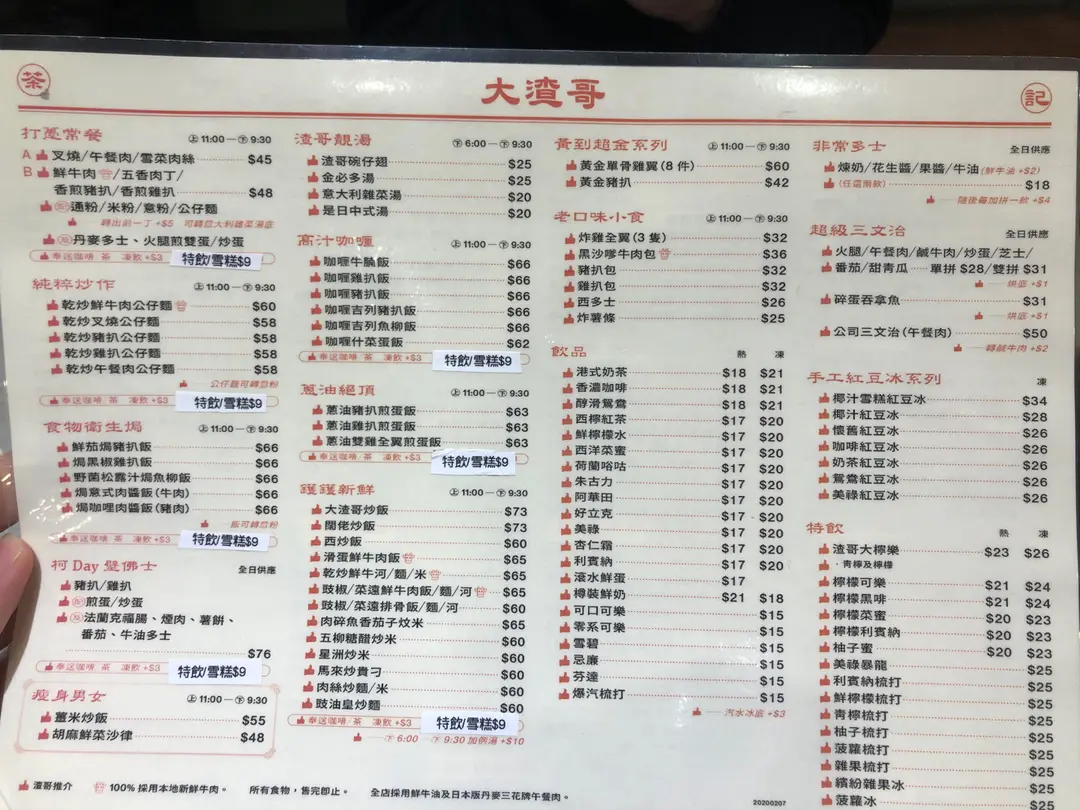 茶
大渣哥
記
打葱常餐 上11:00—下9:30
A 叉燒/午餐肉/雪菜肉絲 $45
B 鮮牛肉/五香肉丁/
香煎豬扒/香煎雞扒 $48
配 通粉/米粉/意粉/公仔麵
轉出前一丁 +$5 可轉意大利雜菜湯底
及 丹麥多士、火腿煎雙蛋/炒蛋
奉送咖啡 茶 凍飲+$3 特飲/雪糕$9
純粹炒作 上11:00—下9:30
乾炒鮮牛肉公仔麵 $60
乾炒叉燒公仔麵 $58
乾炒豬扒公仔麵 $58
乾炒雞扒公仔麵 $58
乾炒午餐肉公仔麵 $58
公仔麵可轉意粉
奉送咖啡 茶 凍飲+$3 特飲/雪糕$9
食物衛生焗 上11:00—下9:30
鮮茄焗豬扒飯 $66
焗黑椒雞扒飯 $66
野菌松露汁焗魚柳飯 $66
焗意式肉醬飯(牛肉) $66
焗咖哩肉醬飯(豬肉) $66
飯可轉意粉
奉送咖啡 茶 凍飲+$3 特飲/雪糕$9
柯Day壁佛士 全日供應
豬扒/雞扒
配 煎蛋/炒蛋
及 法蘭克福腸、煙肉、薯餅、
番茄、牛油多士
$76
奉送咖啡 茶 凍飲+$3 特飲/雪糕$9
瘦身男女 上11:00—下9:30
薑米炒飯 $55
胡麻鮮菜沙律 $48
渣哥靚湯 下6:00—下9:30
渣哥碗仔翅 $25
金必多湯 $25
意大利雜菜湯 $20
是日中式湯 $20
高汁咖喱 上11:00—下9:30
咖喱牛腩飯 $66
咖喱雞扒飯 $66
咖喱豬扒飯 $66
咖喱吉列豬扒飯 $66
咖喱吉列魚柳飯 $66
咖喱什菜蛋飯 $62
奉送咖啡 茶 凍飲+$3 特飲/雪糕$9
蔥油絕頂 上11:00—下9:30
蔥油豬扒煎蛋飯 $63
蔥油雞扒煎蛋飯 $63
蔥油雙雞全翼煎蛋飯 $63
奉送咖啡 茶 凍飲+$3 特飲/雪糕$9
鑊鑊新鮮 上11:00—下9:30
大渣哥炒飯 $73
闊佬炒飯 $73
西炒飯 $60
滑蛋鮮牛肉飯 $65
乾炒鮮牛河/麵/米 $65
豉椒/菜遠鮮牛肉飯/麵/河 $65
豉椒/菜遠排骨飯/麵/河 $60
肉碎魚香茄子炆米 $65
五柳糖醋炒米 $60
星洲炒米 $60
馬來炒貴刁 $60
肉絲炒麵/米 $60
豉油皇炒麵 $60
奉送咖啡 茶 凍飲+$3 特飲/雪糕$9
下6:00—下9:30 加例湯+$10
黃到超金系列 上11:00—下9:30
黃金單骨雞翼(8 件) $60
黃金豬扒 $42
老口味小食 上11:00—下9:30
炸雞全翼(3 隻) $32
黑沙嗲牛肉包 $36
豬扒包 $32
雞扒包 $32
西多士 $26
炸薯條 $25
飲品 熱 凍
港式奶茶 $18 $21
香濃咖啡 $18 $21
醇滑鴛鴦 $18 $21
西檸紅茶 $17 $20
鮮檸檬水 $17 $20
西洋菜蜜 $17 $20
荷蘭唂咕 $17 $20
朱古力 $17 $20
阿華田 $17 $20
好立克 $17 $20
美祿 $17 $20
杏仁霜 $17 $20
利賓納 $17 $20
滾水鮮蛋 $17
樽裝鮮奶 $21 $18
可口可樂 $15
零系可樂 $15
雪碧 $15
忌廉 $15
芬達 $15
爆汽梳打 $15
汽水冰底 +$3
非常多士 全日供應
煉奶/花生醬/果醬/牛油(鮮牛油 +$2)
(任選兩款) $18
隨後每加拼一款 +$4
超級三文治 全日供應
火腿/午餐肉/鹹牛肉/炒蛋/芝士/
番茄/甜青瓜 單拼 $28/雙拼 $31
烘底 +$1
碎蛋吞拿魚 $31
烘底 +$1
公司三文治(午餐肉) $50
轉鹹牛肉 +$2
手工紅豆冰系列 凍
椰汁雪糕紅豆冰 $34
椰汁紅豆冰 $28
懷舊紅豆冰 $26
咖啡紅豆冰 $26
奶茶紅豆冰 $26
鴛鴦紅豆冰 $26
美祿紅豆冰 $26
特飲 熱 凍
渣哥大檸樂 $23 $26
・青檸及檸檬
檸檬可樂 $21 $24
檸檬黑啡 $21 $24
檸檬菜蜜 $20 $23
檸檬利賓納 $20 $23
柚子蜜 $20 $23
美祿暴龍 $25
利賓納梳打 $25
鮮檸檬梳打 $25
青檸梳打 $25
柚子梳打 $25
菠蘿梳打 $25
雜果梳打 $25
繽紛雜果冰 $25
菠蘿冰 $25
渣哥推介 100%採用本地新鮮牛肉。 所有食物,售完即止。 全店採用鮮牛油及日本版丹麥三花牌午餐肉。
20200207